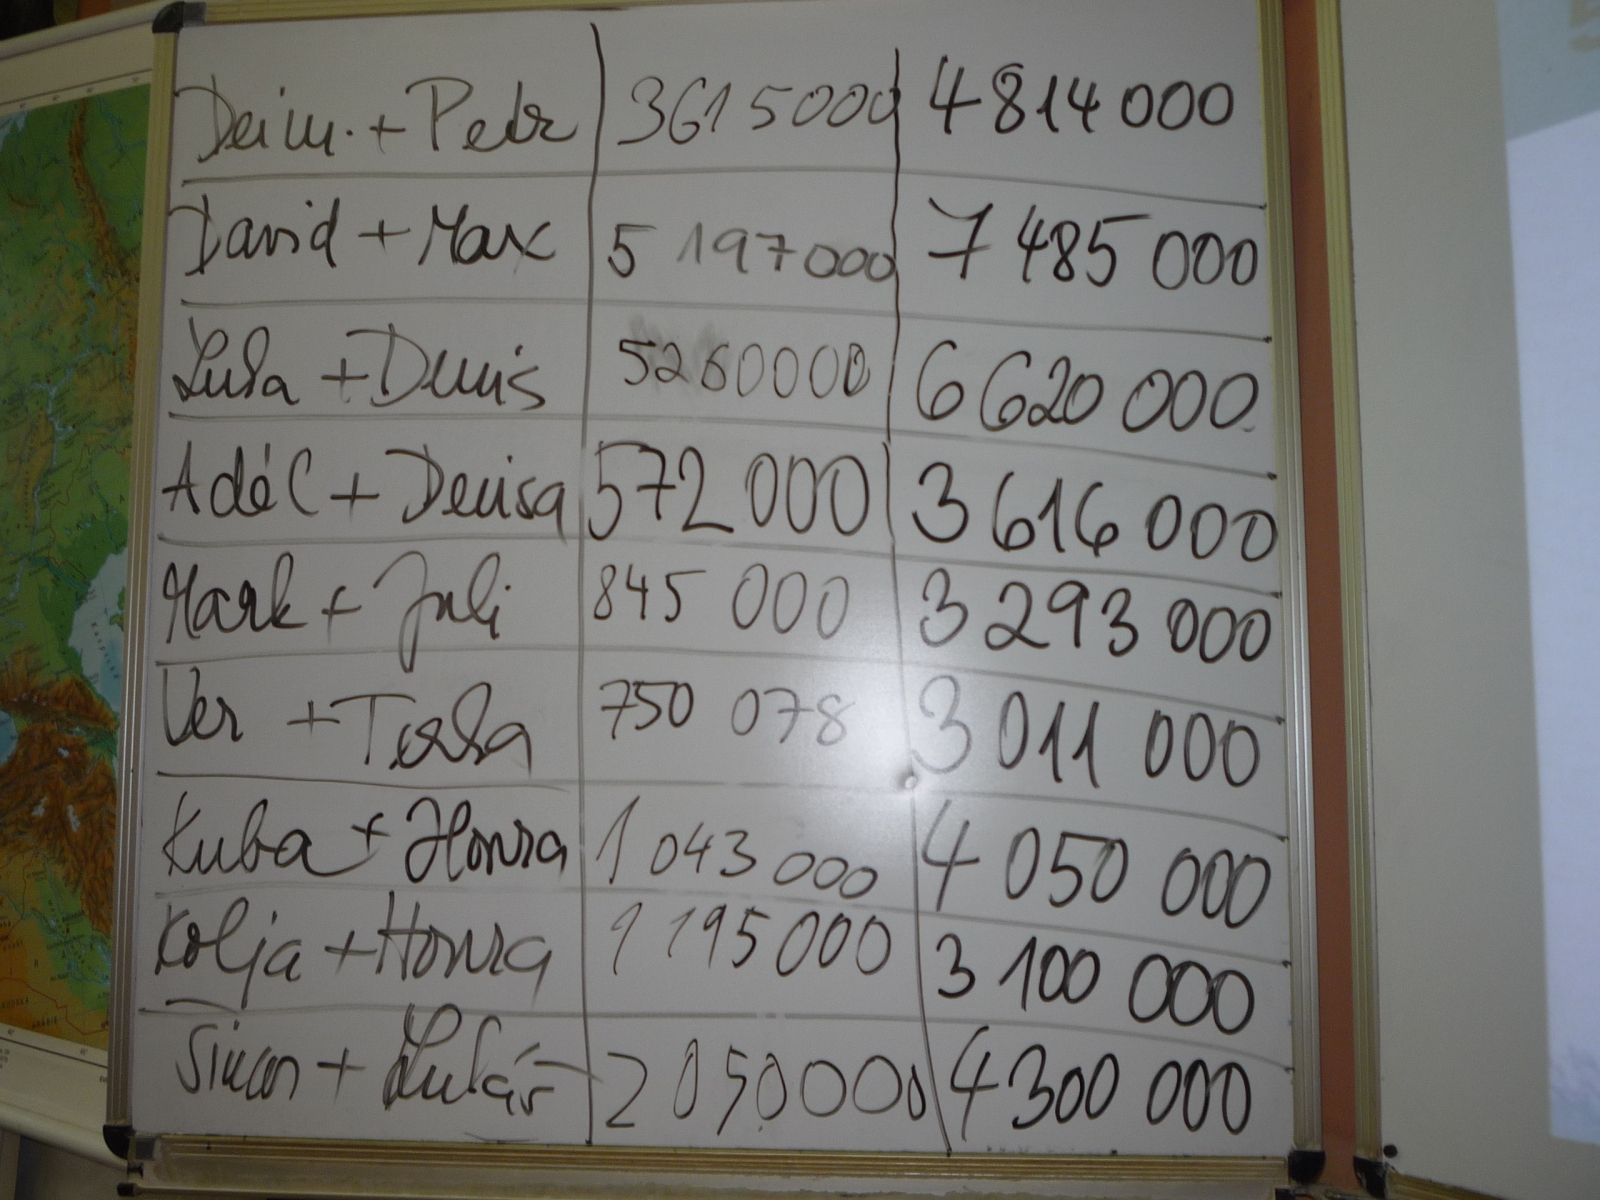 Deim. + Petr 3615000 4 814 000
David + Max 5 197000 7 485 000
Luka + Denis 5260000 6 620 000
Adél + Denisa 572 000 3 616 000
Mark + Juli 845 000 3 293 000
Ver + 750 078 3 011 000
Kuba + Honza 1 043 000 4 050 000
Kolja + Honza 1 195000 3 100 000
Simon + Lukáš 2 050000 4 300 000